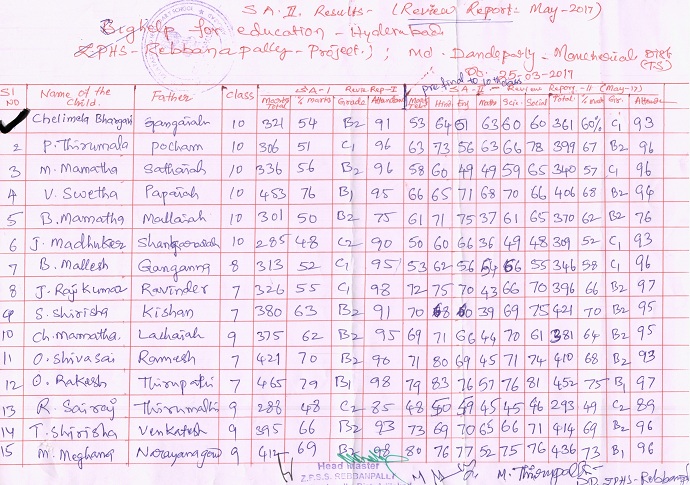 S.A. II. Results - (Review Report: May-2017)
Bighelp for education - Hyderabad.
ZPHS - Rebbanapally - Project.); Md. Dandepally - Mancherial Dist (TS)
Db: 25-03-2017
SA-I Revie Rep-I SA-II - Review Report -II (May-17)
Sl NO Name of the Child. Father Class Marks Total % Marks Grade Attendance Hindi Eng Maths Scie. Social Total % mar Gr. Attend
Chelimela Bhargavi Gangaiah 10 321 54 B2 91 53 64 51 63 60 60 361 60% C1 93
2 P. Thirumala Pocham 10 306 51 C1 96 63 73 56 63 66 78 399 67 B2 96
3 M. Mamatha Sathaiah 10 336 56 B2 96 58 60 49 49 59 65 340 57 C1 96
4 V. Swetha Papaiah 10 453 76 B1 95 66 65 71 68 70 66 406 68 B2 94
5 B. Mamatha Mallaiah 10 301 50 B2 75 61 71 75 37 61 65 370 62 B2 76
6 J. Madhuker 10 285 48 C2 90 50 60 66 36 49 48 309 52 C1 93
7 B. Mallesh Ganganna 8 313 52 C1 95 53 62 56 54 66 55 346 58 C1 96
8 J. Raj Kumar Ravinder 7 326 55 C1 98 72 75 70 43 66 70 396 66 B2 97
9 S. Shirisha Kishan 7 380 63 B2 91 70 68 60 39 69 75 421 70 B2 95
10 Ch. Mamatha. Lachaiah 9 375 62 B2 95 69 71 66 44 70 61 381 64 B2 95
11 O. Shivasai Ramesh 7 421 70 B2 90 71 80 69 45 71 74 410 68 B2 93
12 O. Rakesh Thirupathi 7 465 79 B1 98 79 83 76 57 76 81 452 75 B1 97
13 R. Sairaj Thirumalli 9 288 48 C2 85 48 60 49 45 45 46 293 49 C2 89
14 T. Shirisha Venkatesh 9 395 66 B2 93 73 69 70 65 66 71 414 69 B2 96
15 M. Meghana Narayanagoud 9 412 69 B2 98 80 76 77 52 75 76 436 73 B1 96
Head Master
Z.P.S.S. REBBANPALLY
M. Thirupathi
ZPHS - Rebbanapally